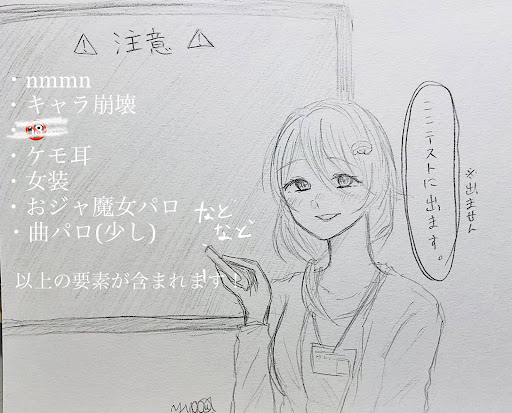 ⚠ 注意 ⚠
・nmmn
・キャラ崩壊
・🔞
・ケモ耳
・女装
・おジャ魔女パロ
・曲パロ(少し)
などなど
以上の要素が含まれます!
ここテストに出ます。
※出ません